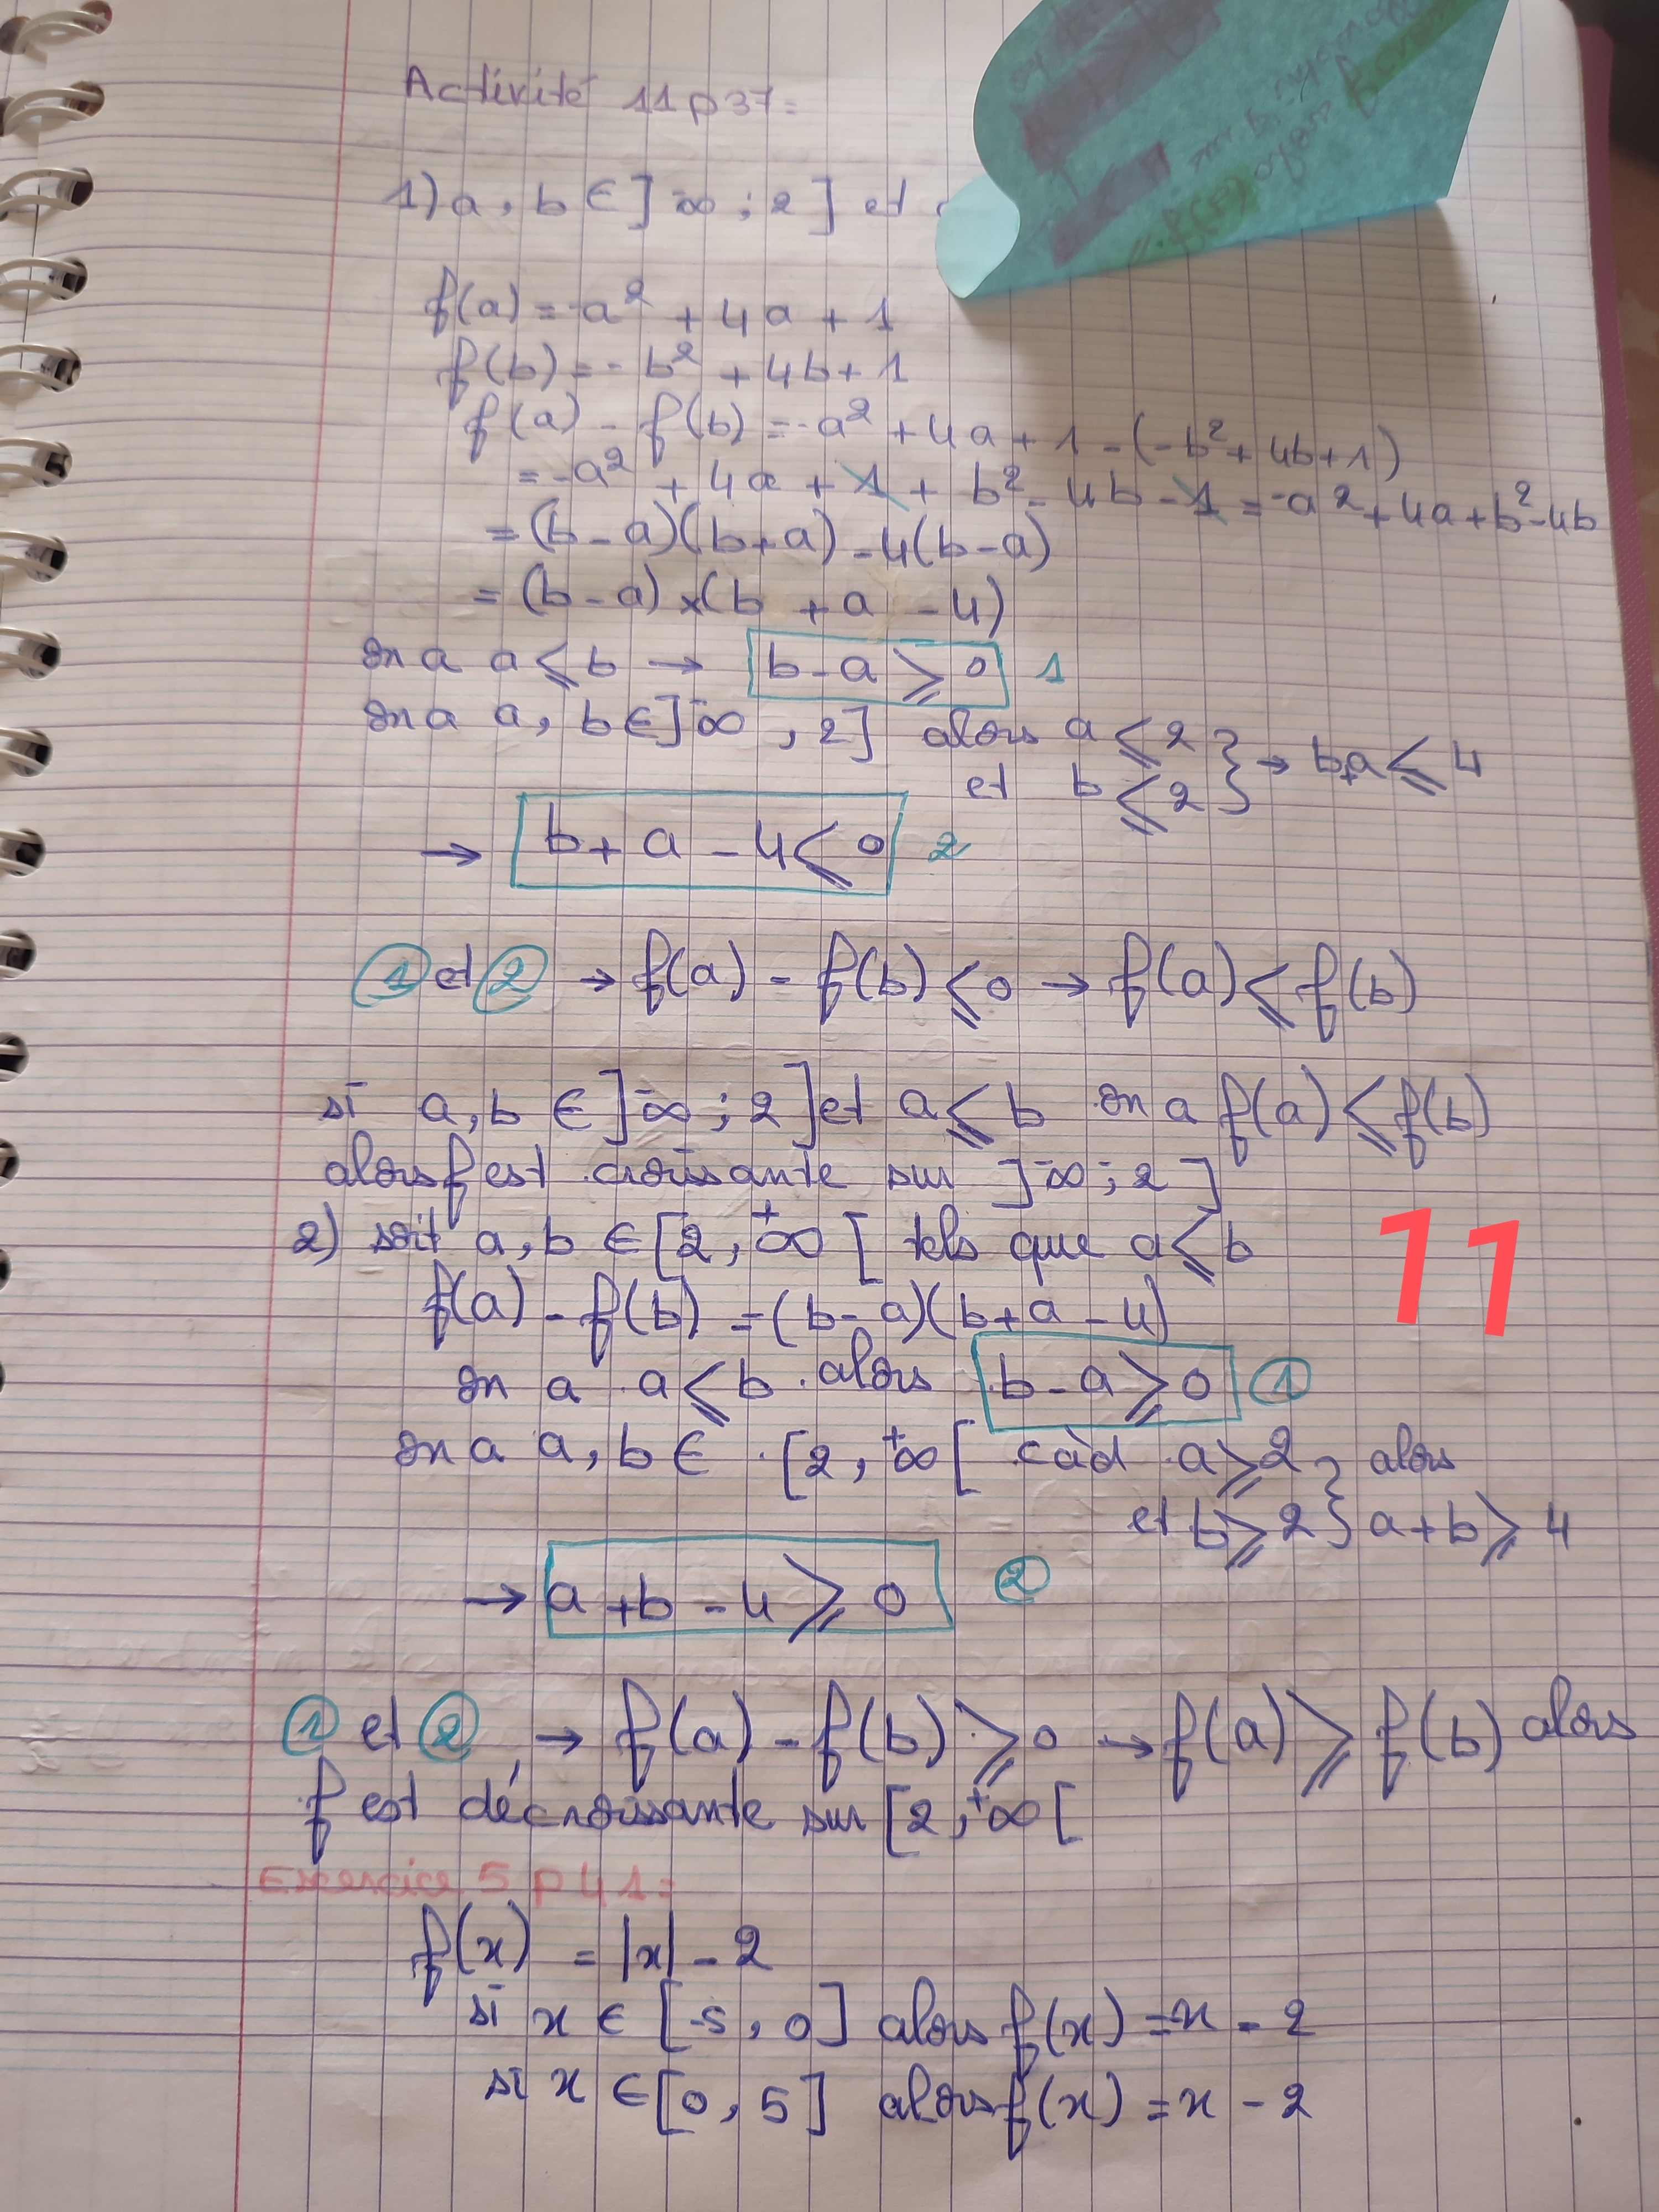 Activité 11 p 37:
1) a, b ∈ ]-∞ ; 2] et
f(a) = -a² + 4a + 1
f(b) = -b² + 4b + 1
f(a) - f(b) = -a² + 4a + 1 - (-b² + 4b + 1)
= -a² + 4a + 1 + b² - 4b - 1 = -a² + 4a + b² - 4b
= (b - a)(b + a) - 4(b - a)
= (b - a) × (b + a - 4)
on a a ⩽ b → b - a ⩾ 0 1
on a a, b ∈ ]-∞ , 2] alors a ⩽ 2 } → b+a ⩽ 4
et b ⩽ 2 }
→ b + a - 4 ⩽ 0 2
① et ② → f(a) - f(b) ⩽ 0 → f(a) ⩽ f(b)
si a, b ∈ ]-∞ ; 2] et a ⩽ b on a f(a) ⩽ f(b)
alors f est croissante sur ]-∞ ; 2]
2) soit a, b ∈ [2, +∞ [ tels que a ⩽ b
11
f(a) - f(b) = (b - a)(b + a - 4)
on a a ⩽ b alors b - a ⩾ 0 ①
on a a, b ∈ [2, +∞ [ càd a ⩾ 2 } alors
et b ⩾ 2 } a + b ⩾ 4
→ a + b - 4 ⩾ 0 ②
① et ② → f(a) - f(b) ⩾ 0 → f(a) ⩾ f(b) alors
f est décroissante sur [2, +∞ [
Exercice 5 p 41:
f(x) = |x| - 2
si x ∈ [-5, 0] alors f(x) = -x - 2
si x ∈ [0, 5] alors f(x) = x - 2